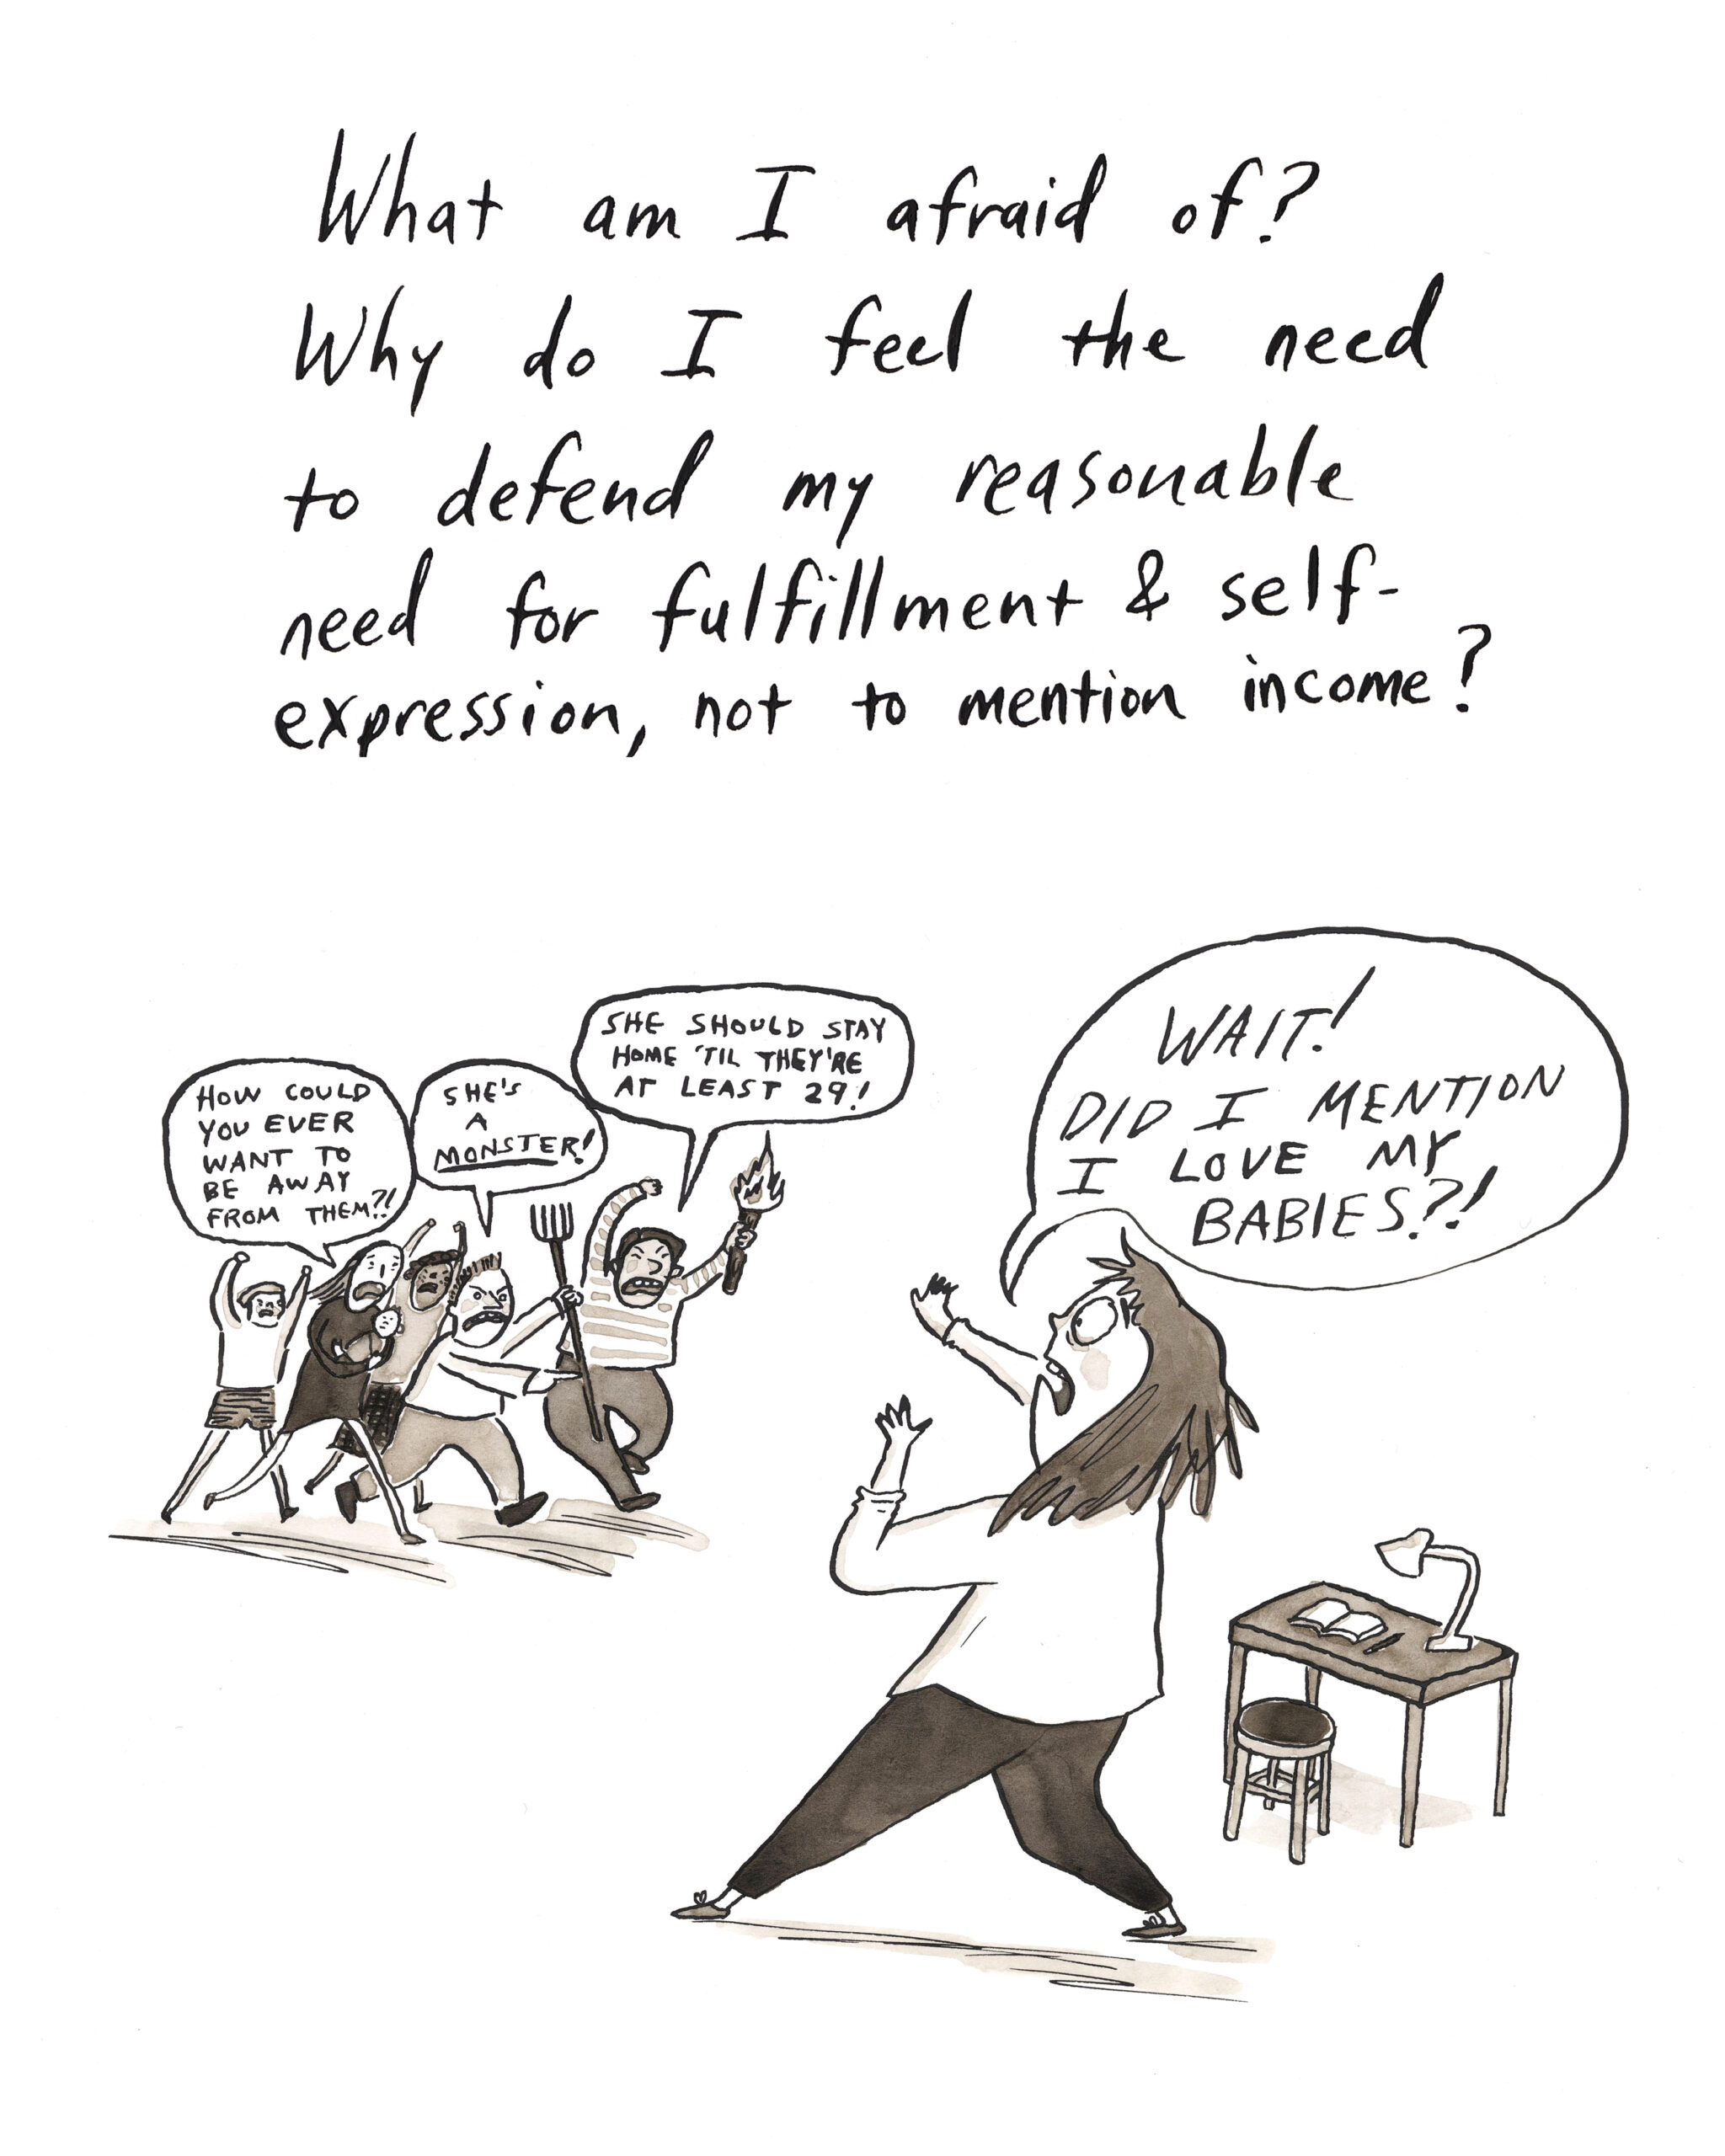 What am I afraid of?
Why do I feel the need
to defend my reasonable
need for fulfillment & self-
expression, not to mention income?
SHE SHOULD STAY
HOME 'TIL THEY'RE
AT LEAST 29!
HOW COULD
YOU EVER
WANT TO
BE AWAY
FROM THEM?!
SHE'S
A
MONSTER!
WAIT!
DID I MENTION
I LOVE MY
BABIES?!